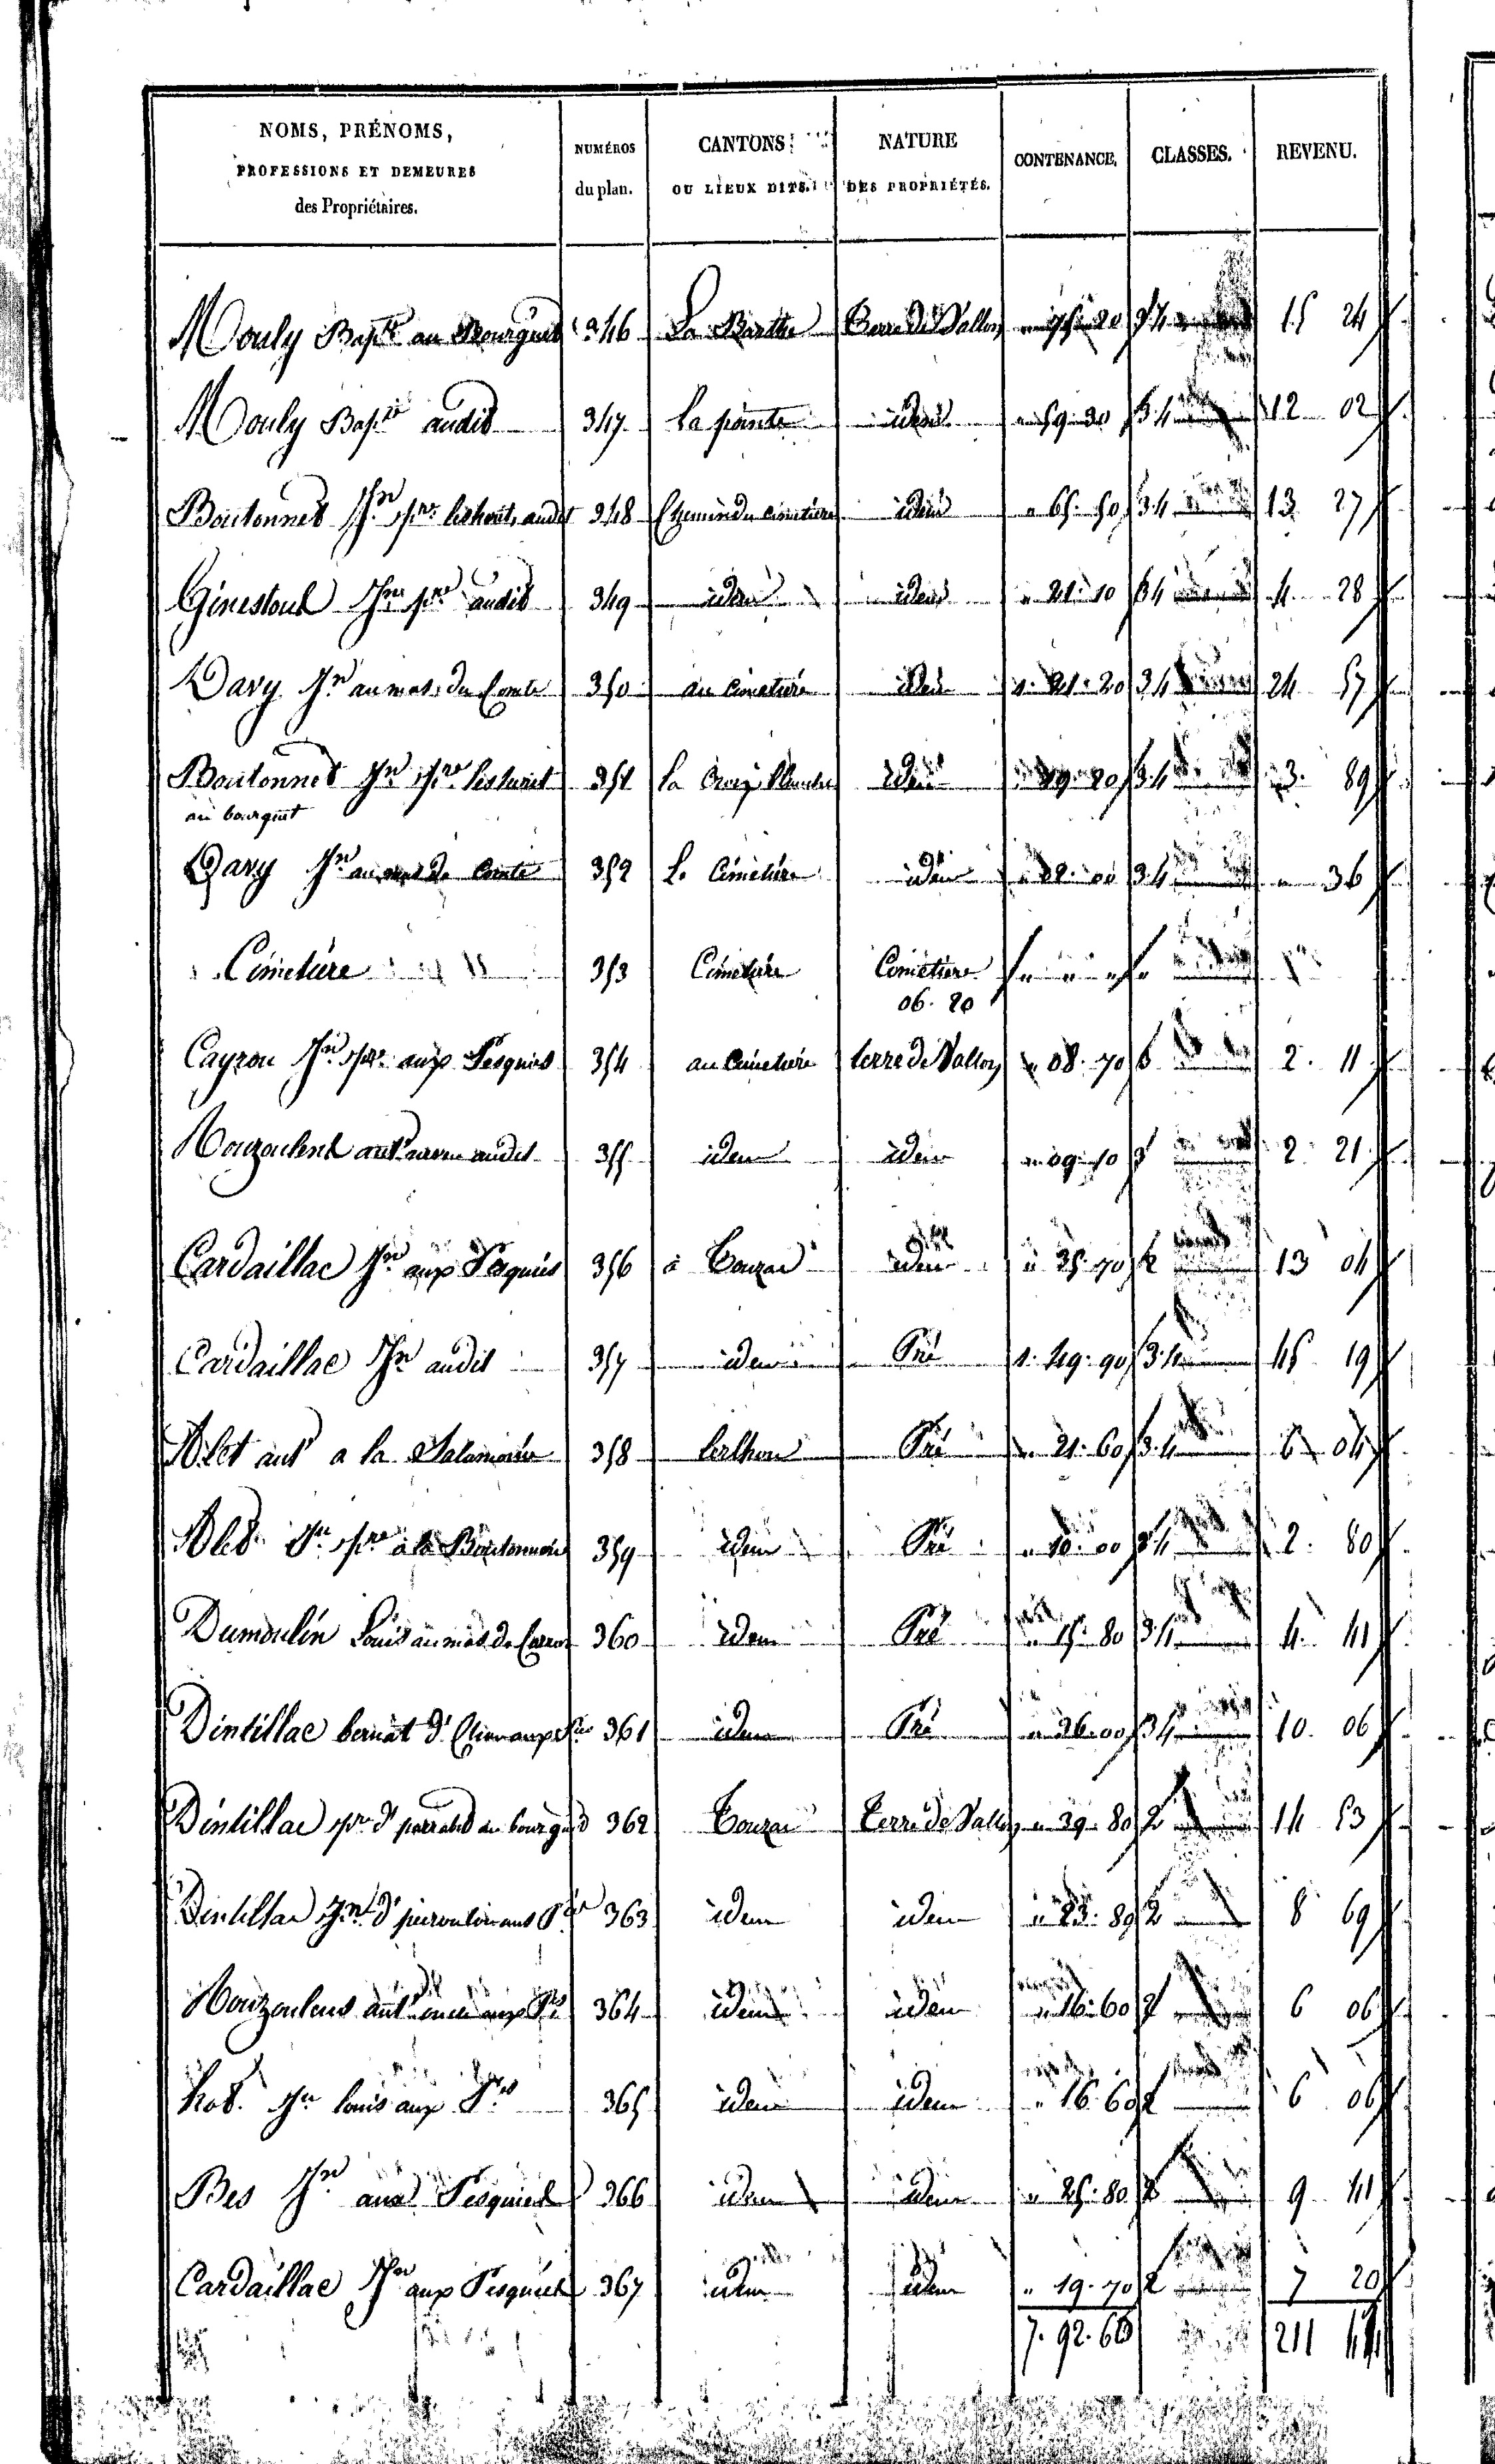 NOMS, PRÉNOMS, PROFESSIONS ET DEMEURES des Propriétaires. NUMÉROS du plan. CANTONS OU LIEUX DITS. NATURE DES PROPRIÉTÉS. CONTENANCE. CLASSES. REVENU.
Mouly Bapte au Bourguet 346 La Barthe Terre de Vallon " 75. 20 3.4 15 24
Mouly Bapte audit 347 La pointe idem " 59. 30 3.4 12 02
Boutonnet Jn pre audit 348 Chemin du cimetière idem " 65. 50 3.4 13 27
Ginestoul Jn pre audit 349 idem idem " 21. 10 3.4 4. 28
Davy Jn au mas du Comte 350 au cimetière idem 1. 21. 20 3.4 24 57
Boutonnet Jn pre 351 la Croix Blanche idem " 19. 20 3.4 3. 89
au bourguet
Davy Jn au mas de Comte 352 Le Cimetière idem 3.4 " 36
Cimetière 353 Cimetière Cimetière
06. 20
Cayrou Jn pre aux Pesquiés 354 au Cimetière terre de Vallon " 08. 70 2. 11
audit 355 idem idem " 09. 10 2. 21
Cardaillac Jn aux Pesquiés 356 à Touzac idem " 35. 70 2 13 04
Cardaillac Jn audit 357 idem Pré 1. 49. 90 3.4 45 19
Alet ant a la 358 Pré " 21. 60 3.4 6 04
Alet Jn pre à la 359 idem Pré " 10. 00 3.4 2. 80
Dumoulin Louis au mas de 360 idem Pré " 15. 80 3.4 4. 41
Dintillac bernat d' 361 idem Pré " 36. 00 3.4 10. 06
Dintillac pre d' au bourguet 362 Touzac Terre de Vallon " 39. 80 2 14 53
Dintillac Jn d' 363 idem idem " 23. 80 2 8 69
ant aux Pes 364 idem idem " 16. 60 2 6 06
Jn louis aux Pes 365 idem idem " 16. 60 2 6 06
Bes Jn aux Pesquiés 366 idem idem " 25. 80 2 9 41
Cardaillac Jn aux Pesquiés 367 idem idem " 19. 70 2 7 20
7. 92. 60 211